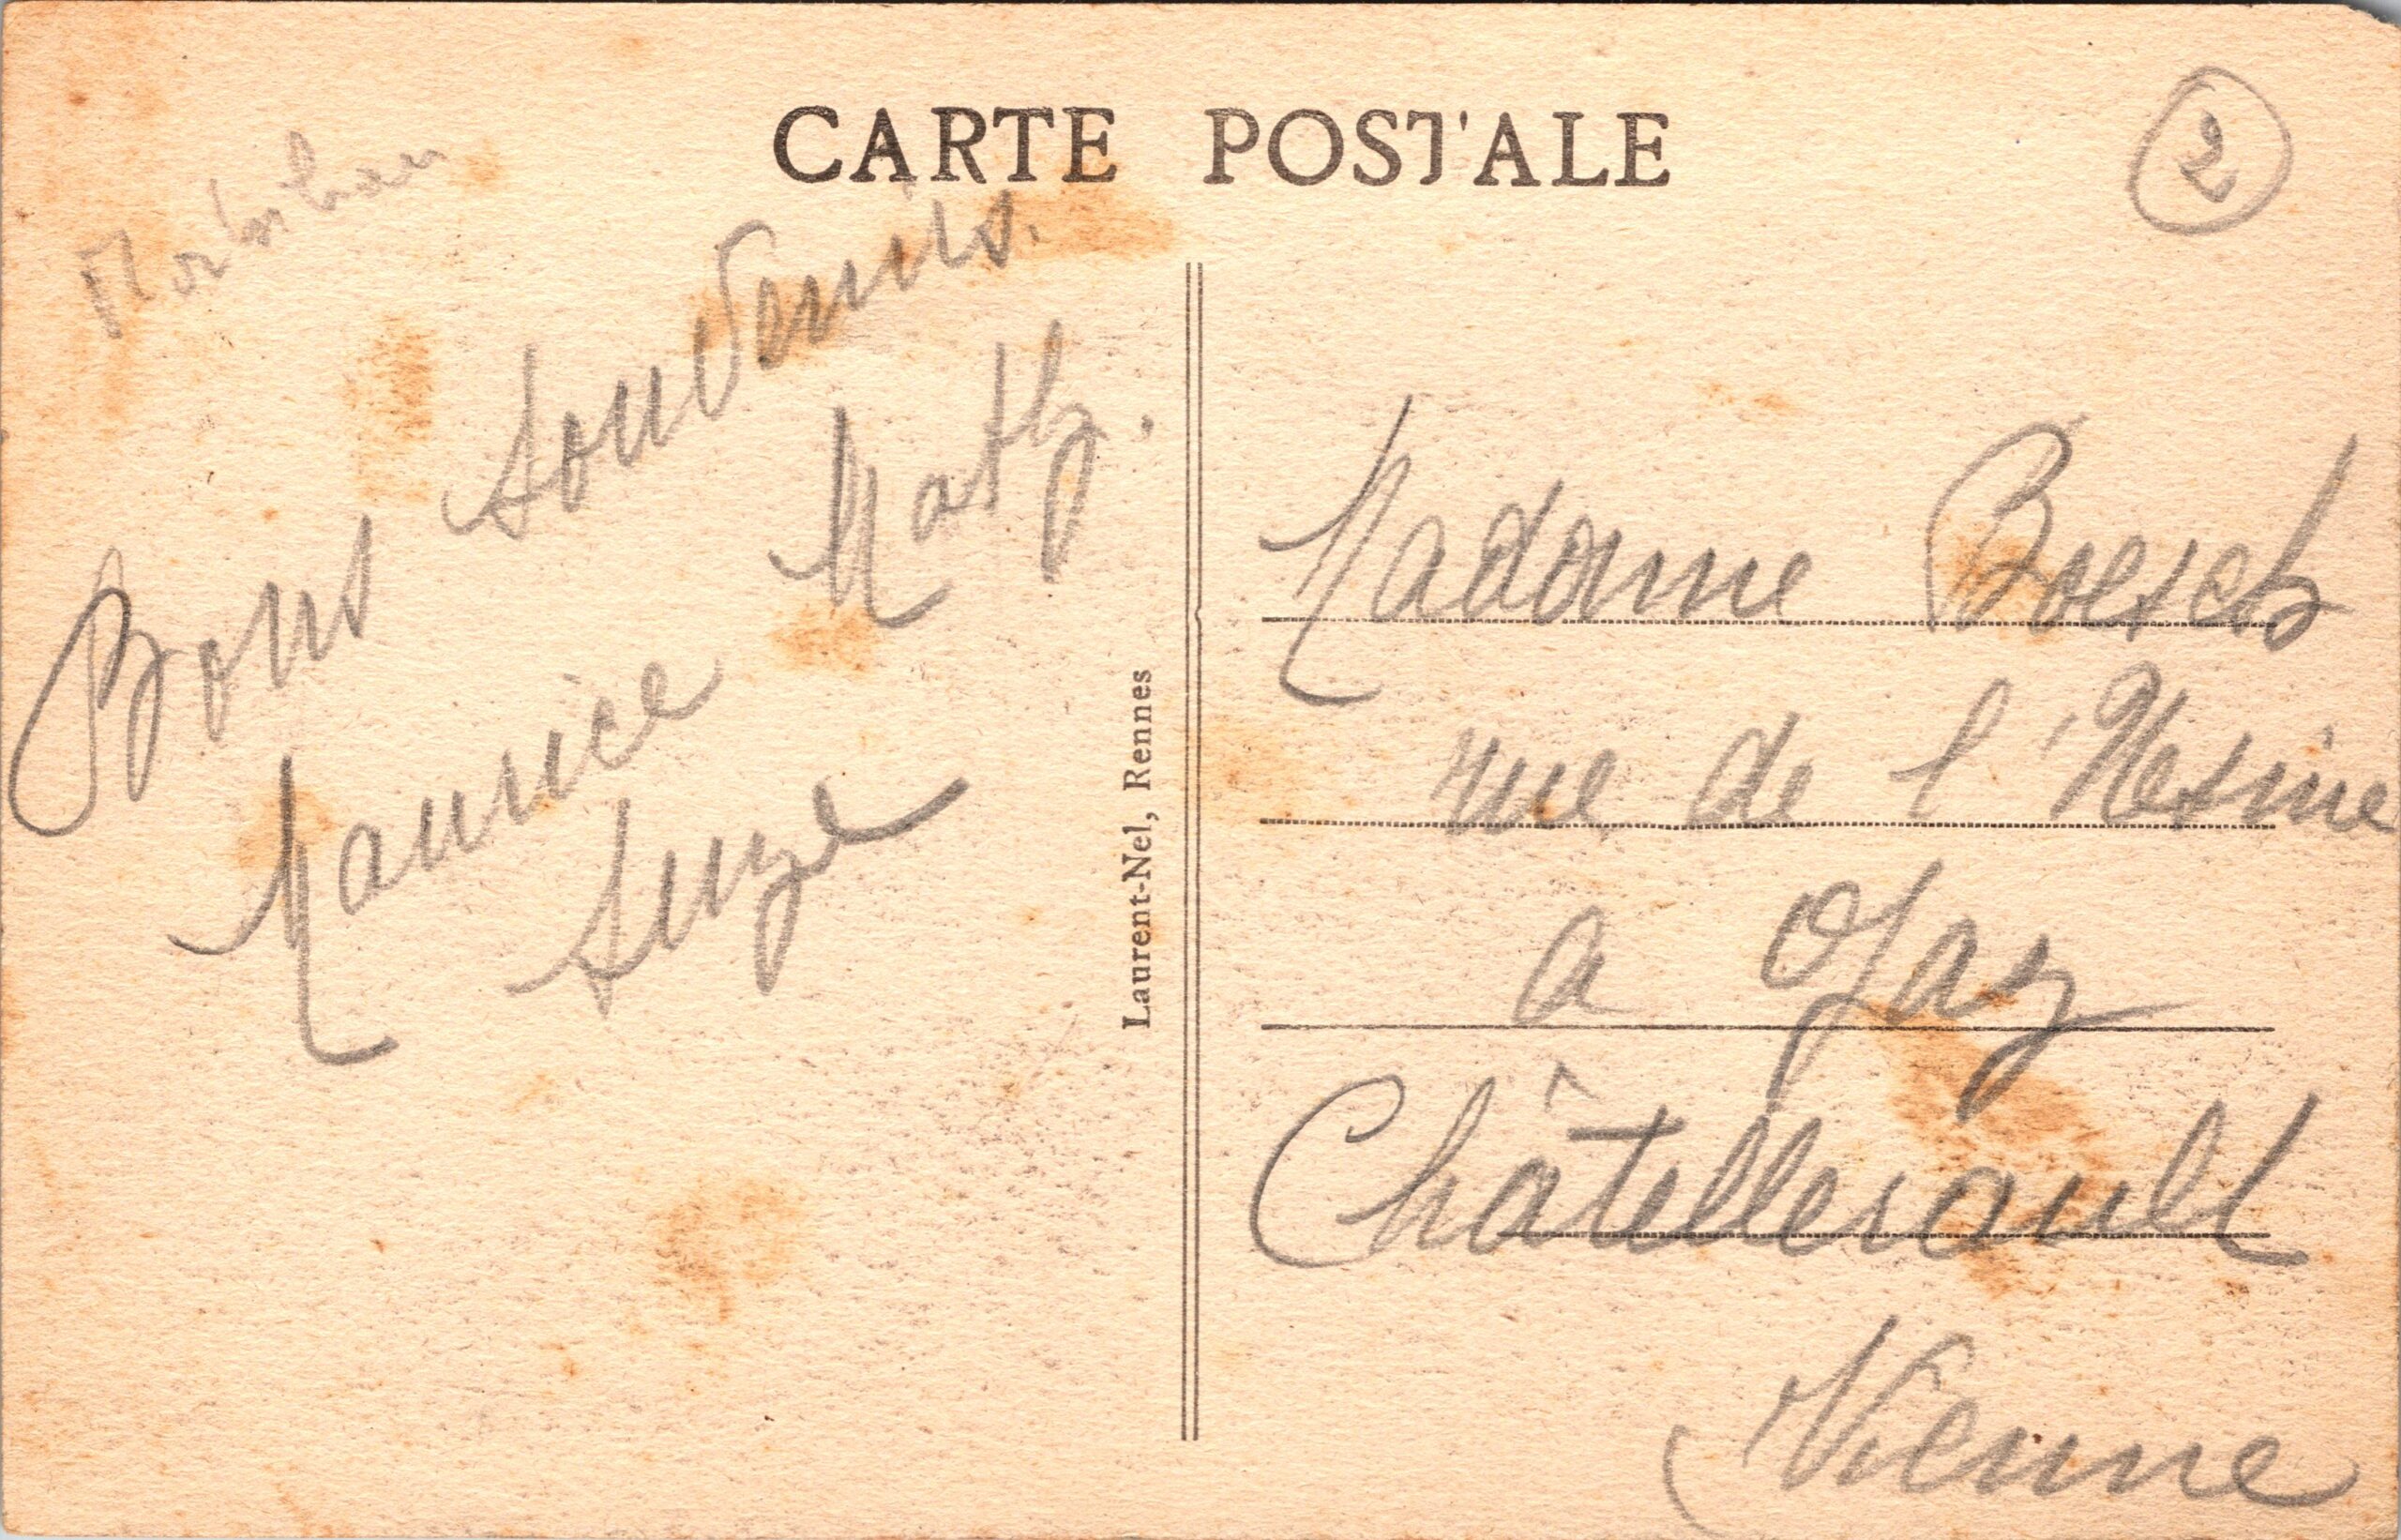 CARTE POSTALE
2
Morbihan
Bons Souvenirs.
Maurice
Suze
Laurent-Nel, Rennes
Madame Boesch
rue de l'Usine
a Gaz
Châtellerault
Vienne